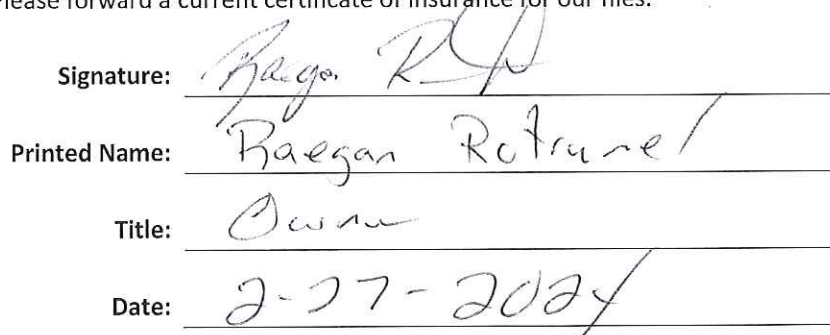 Please forward a current certificate of insurance for our files.
Signature: Raegan
Printed Name: Raegan Rotramel
Title: Owner
Date: 2-27-2024